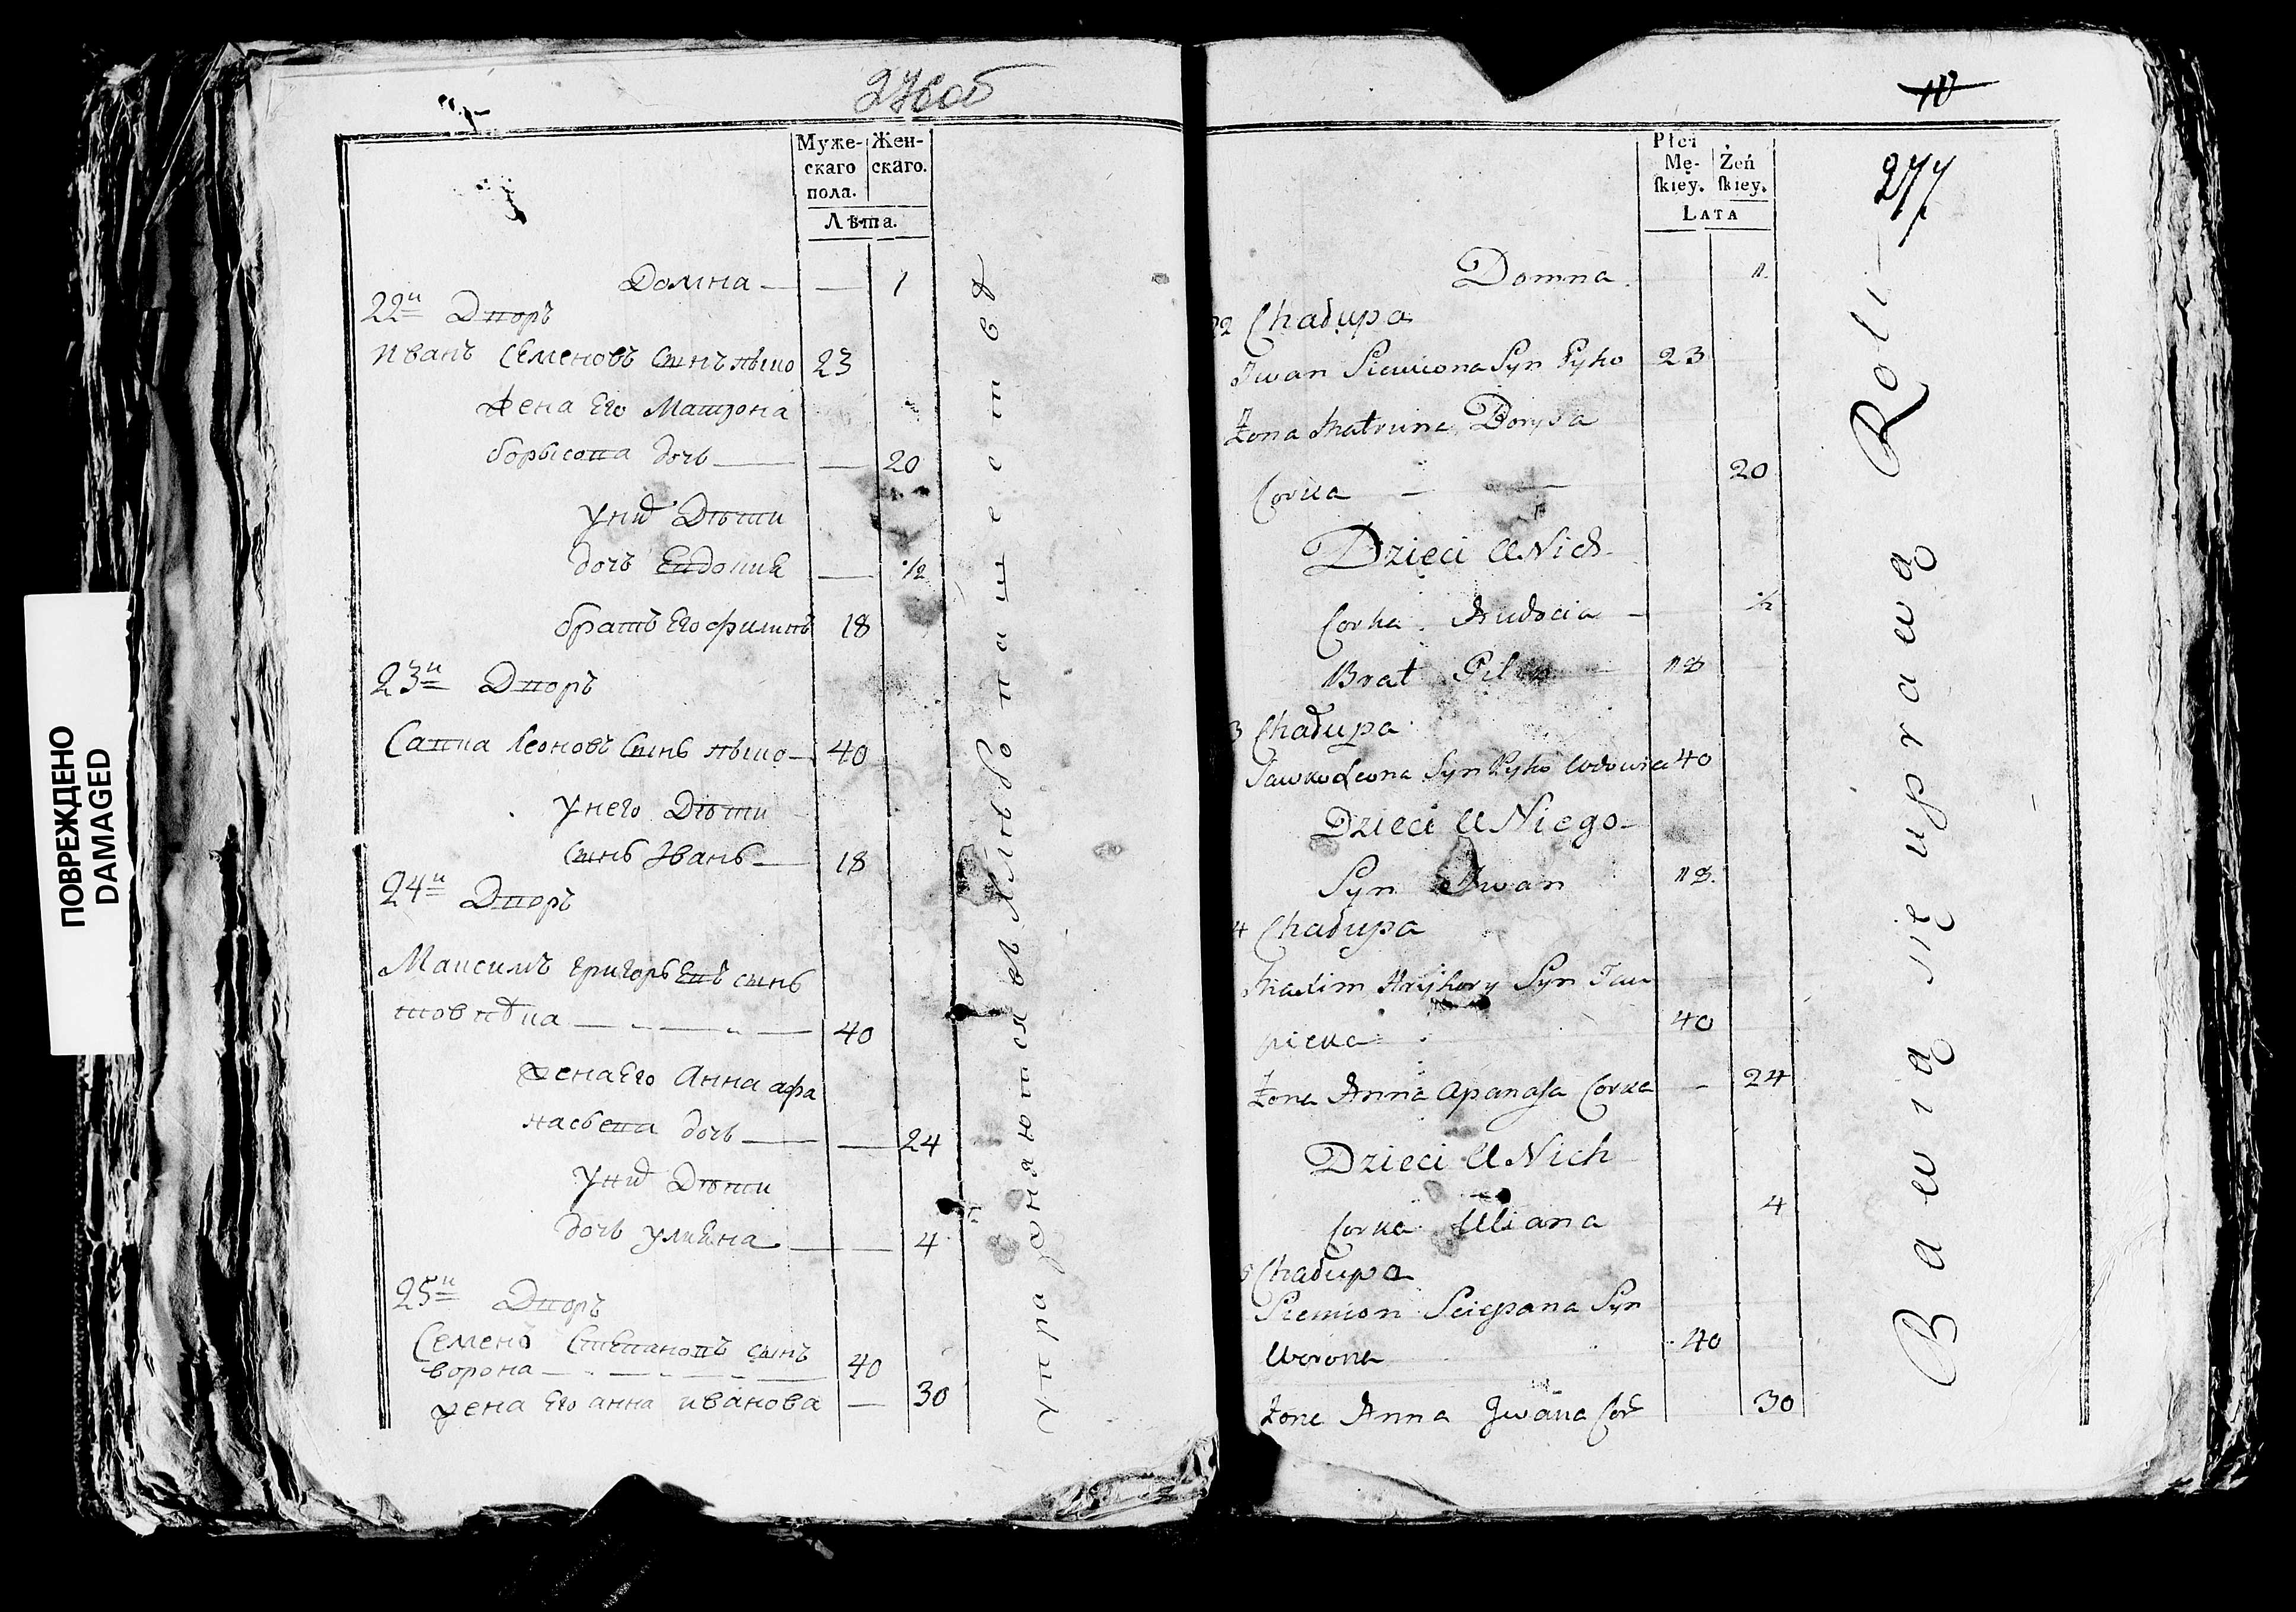 ПОВРЕЖДЕНО
DAMAGED
276об
Муже-
скаго
пола.
Жен-
скаго.
Лѣта.
Домна — — 1
22й Дворъ
Иванъ Семеновъ сынъ 23
жена Его Матрона
борысова дочь — — 20
у них Дѣти
дочь Евдокия — 1/2
братъ Его филипъ 18
23й Дворъ
Савка Леоновъ сынъ 40
У него Дѣти
сынъ Иванъ — 18
24й Дворъ
Максимъ григорьевъ сынъ
товпѣка — 40
жена Его Анна афа
насьева дочь — — 24
у них Дѣти
дочь улияна — — 4
25й Дворъ
Семенъ Степановъ сынъ
ворона — 40
жена Его анна иванова — 30
Упражняются в хлѣбопашестве
10
277
Płci
Mę-
skiey.
Żeń
skiey.
LATA
Domna 1
22 Chałupa
Iwan Siemiona Syn Pyko 23
Żona Matruna Borysa
Corka — 20
Dzieci U Nich
Corka Audocia — 1/2
Brat Pilip 18
3 Chałupa
Sawko Leona Syn Pyko Wdowiec 40
Dzieci U Niego
Syn Iwan 18
4 Chałupa
Maxim Hryhory Syn Tau
pieka 40
Żona Anna Apanasa Corka — 24
Dzieci U Nich
Corka Uliana 4
5 Chałupa
Siemion Sciepana Syn
Worona 40
Żona Anna Iwana Cor 30
Bawią się uprawą Roli